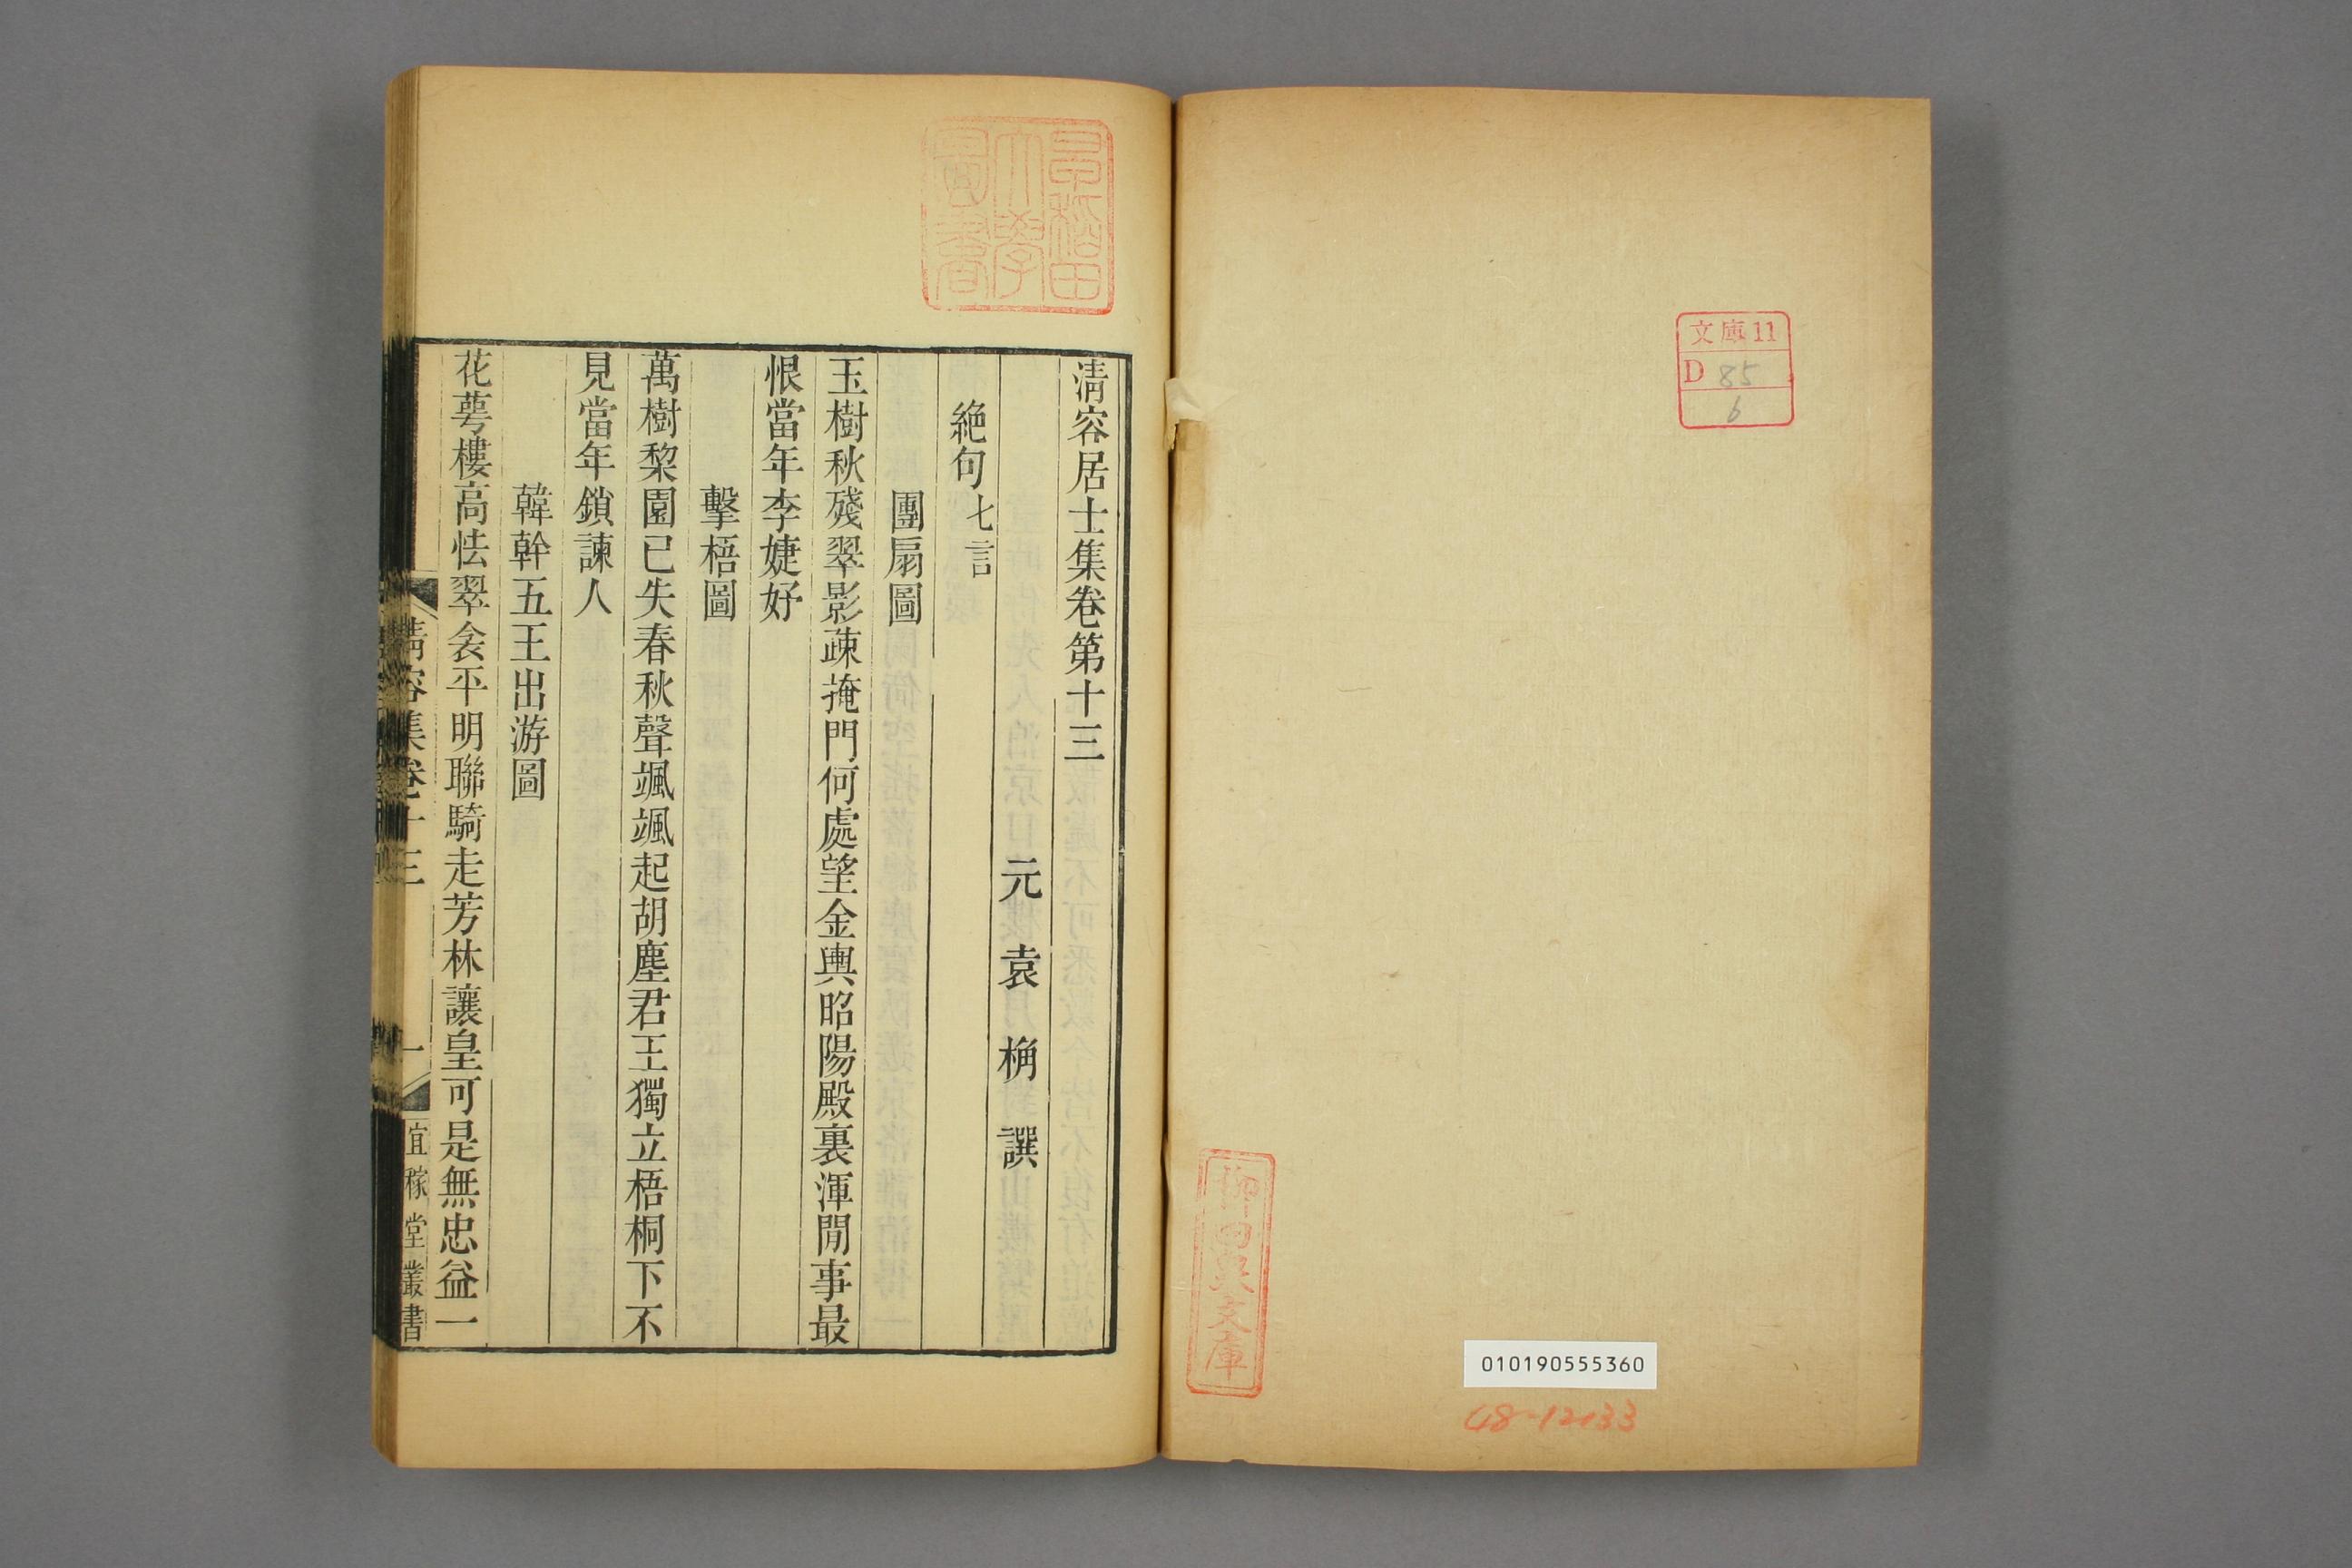 文庫11
D 85
6
柳田泉文庫
010190555360
48-12133
早稲田
大學
圖書
清容居士集卷第十三
元 袁 桷 譔
絶句七言
團扇圖
玉樹秋殘翠影疎掩門何處望金輿昭陽殿裏渾閒事最
恨當年李婕妤
擊梧圖
萬樹棃園已失春秋聲颯颯起胡塵君王獨立梧桐下不
見當年鎖諫人
韓幹五王出游圖
花萼樓高怯翠衾平明聯騎走芳林讓皇可是無忠益一
清容集卷十三
一
宜稼堂叢書